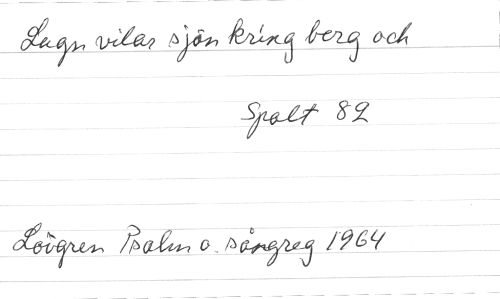 Lugn vilar sjön kring berg och
Spalt 82
Lövgren Psalm o. sångreg 1964